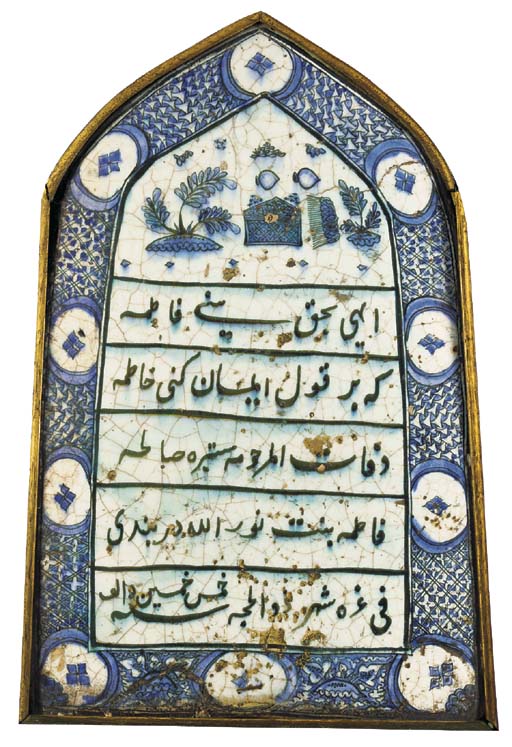 الهی بحق بنی فاطمه
که بر قول ایمان کنی خاطمه
وفات المرحومه ستیره صالحه
فاطمه بنت نور الله دربندی
فی غره شهر ذو الحجه سنه خمس خمسین والف